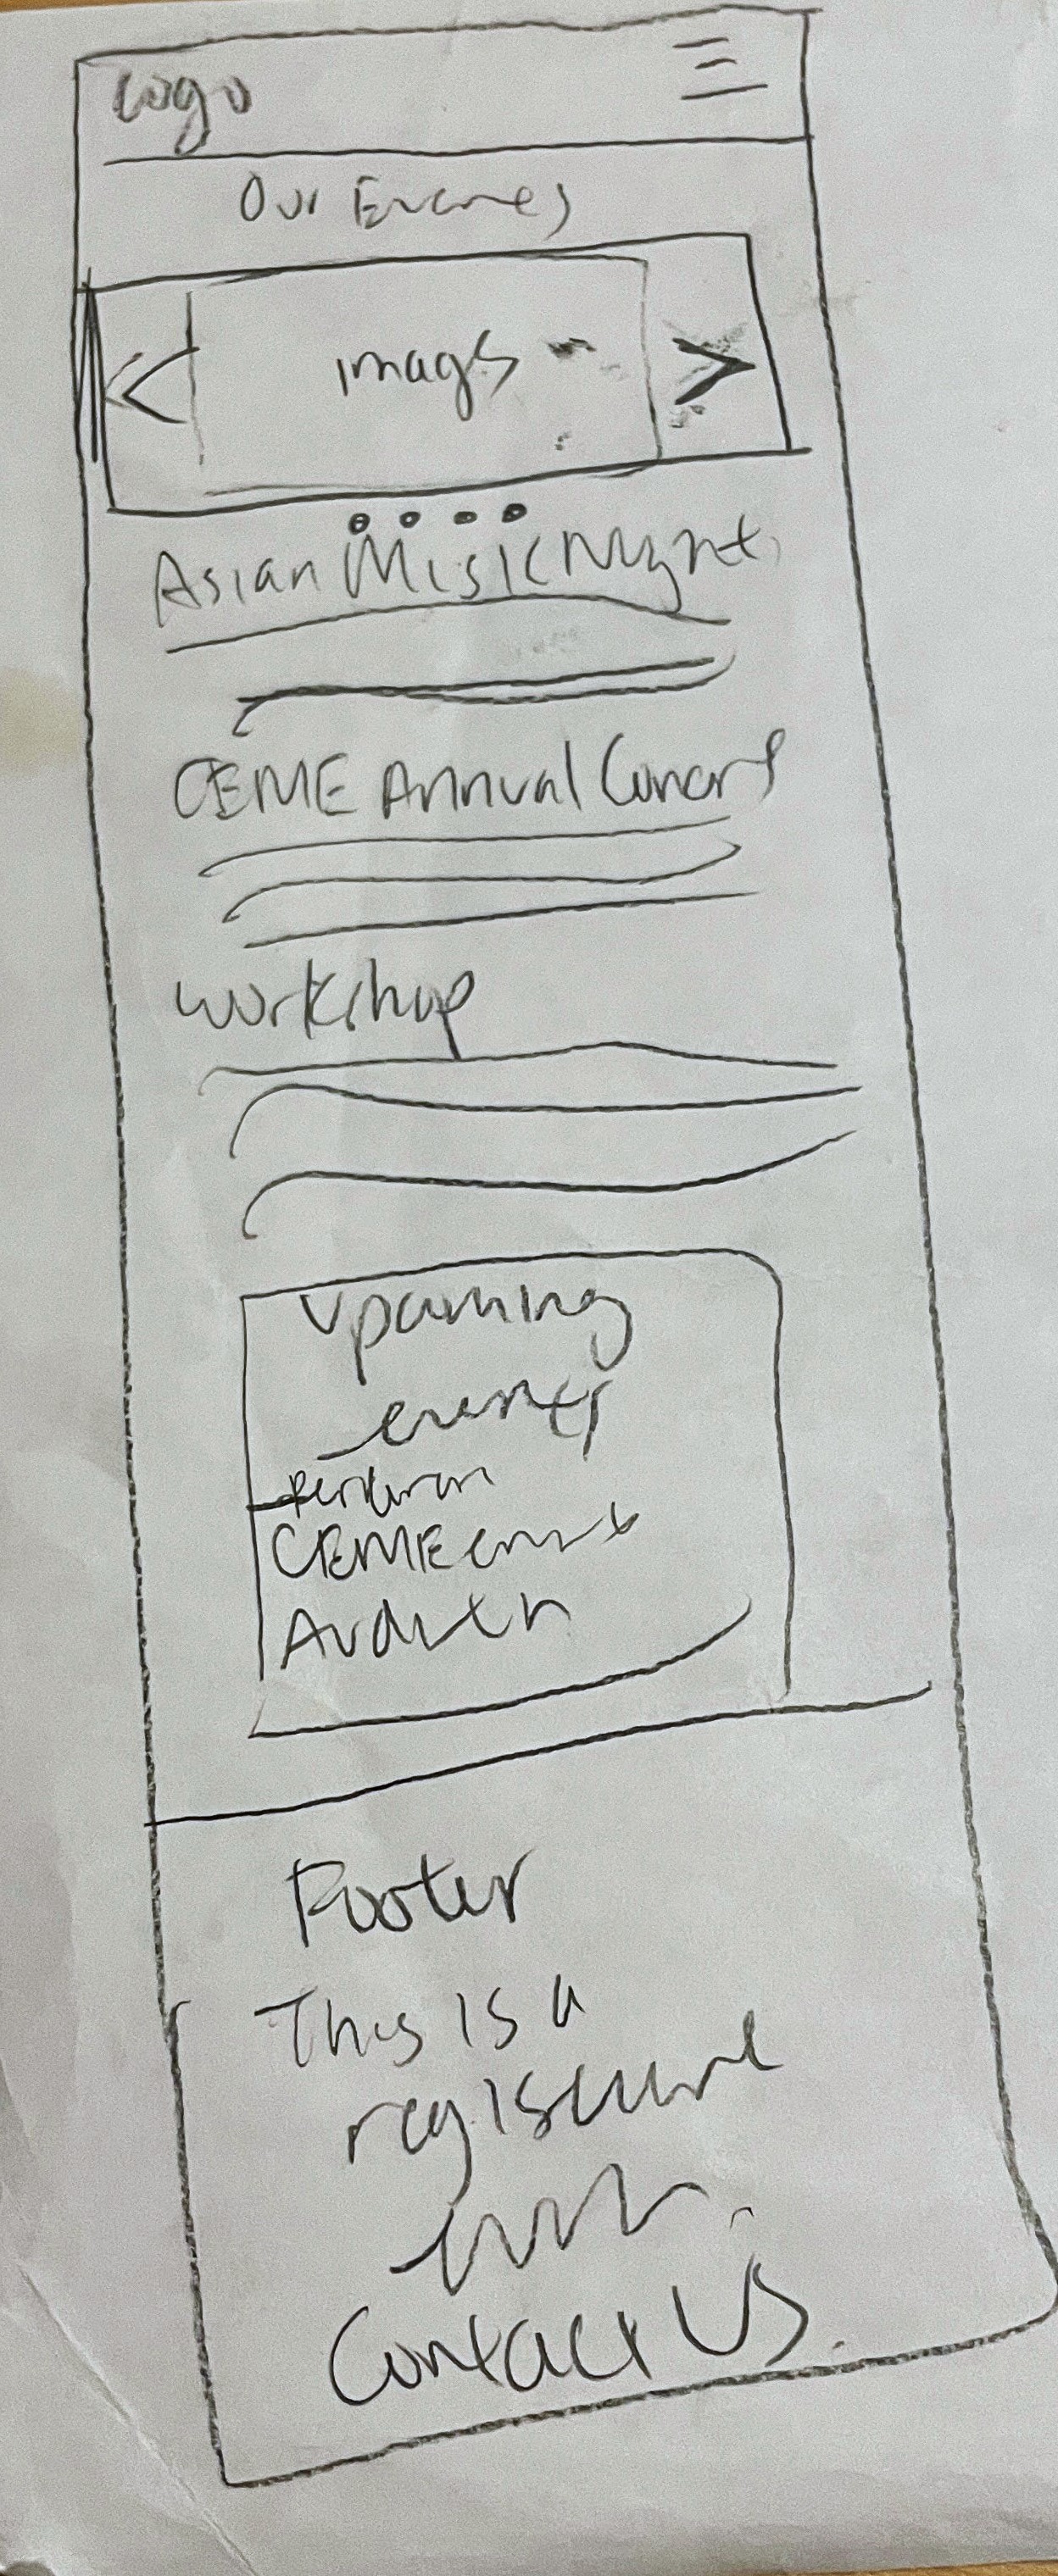 Logo
Our Events
images
Asian Music Night
CEME Annual Concert
Workshop
Upcoming
events
CEME
Audition
Footer
This is a
Contact Us.